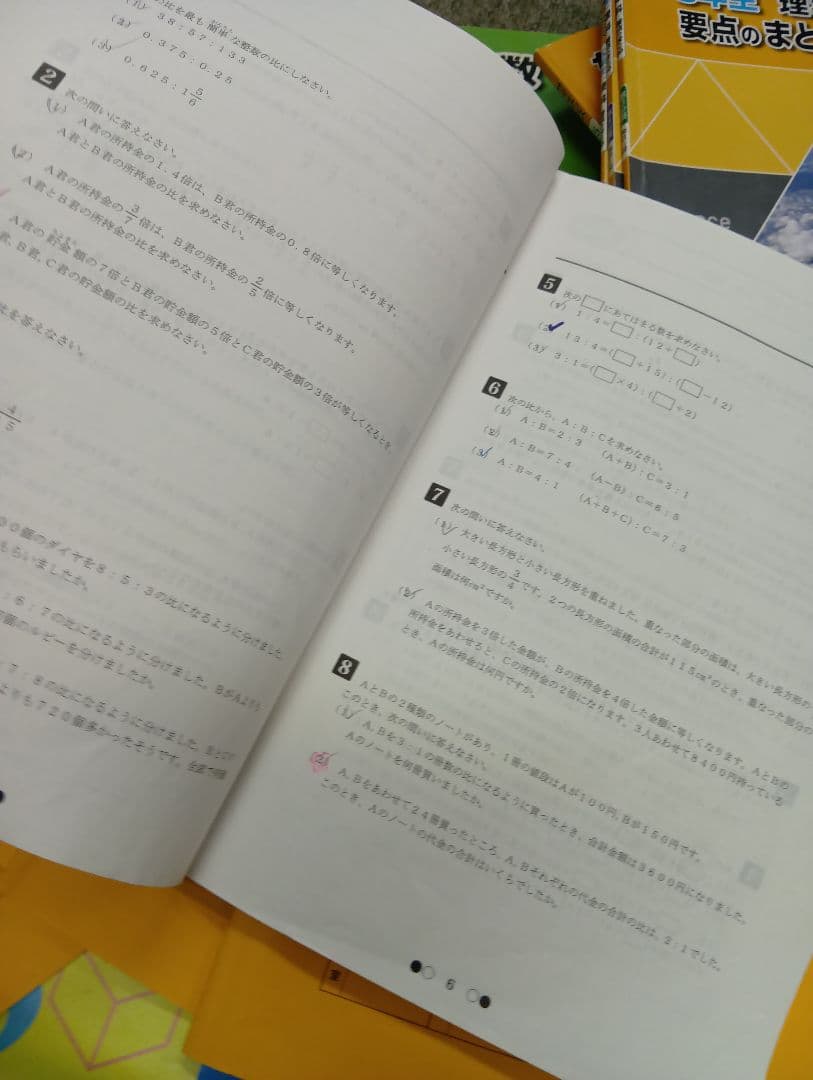 の比を最も簡単な整数の比にしなさい。
(1) 38:57:133
(2) 0.375:0.25
(3) 0.625:1 5/6
2 次の問いに答えなさい。
(1) A君の所持金の1.4倍は、B君の所持金の0.8倍に等しくなります。
A君とB君の所持金の比を求めなさい。
(2) A君の所持金の3/7倍は、B君の所持金の2/5倍に等しくなります。
A君とB君の所持金の比を求めなさい。
A君の貯金額の7倍とB君の貯金額の5倍とC君の貯金額の3倍が等しくなるとき、
君、B君、C君の貯金額の比を求めなさい。
比を答えなさい。
4/5
00個のダイヤを8:5:3の比になるように分けました
もらいましたか。
:6:7の比になるように分けました。BがAよりも
個のルビーを分けましたか。
:7:8の比になるように分けました。
よりも720個多かったそうです。全部で何個
5 次の□にあてはまる数を求めなさい。
(1) 1:4=□:(12+□)
(2) 13:4=(□+15):(□-12)
(3) 3:1=(□×4):(□+2)
6 次の比から、A:B:Cを求めなさい。
(1) A:B=2:3 (A+B):C=3:1
(2) A:B=7:4 (A-B):C=6:5
(3) A:B=4:1 (A+B+C):C=7:3
7 次の問いに答えなさい。
(1) 大きい長方形と小さい長方形を重ねました。重なった部分の面積は、大きい長方形の
小さい長方形の3/4です。2つの長方形の面積の合計が115cm²のとき、重なった部分の
面積は何cm²ですか。
(2) Aの所持金を3倍した金額が、Bの所持金を4倍した金額に等しくなります。AとBの
所持金をあわせると、Cの所持金の2倍になります。3人あわせて8400円持っている
とき、Aの所持金は何円ですか。
8 AとBの2種類のノートがあり、1冊の値段はAが100円、Bが150円です。
このとき、次の問いに答えなさい。
(1) A、Bを3:1の冊数の比になるように買ったとき、合計金額は3600円になりました。
Aのノートを何冊買いましたか。
(2) A、Bをあわせて24冊買ったところ、A、Bそれぞれの代金の合計の比は、2:1でした。
このとき、Aのノートの代金の合計はいくらでしたか。
6
数
理
要点のまと